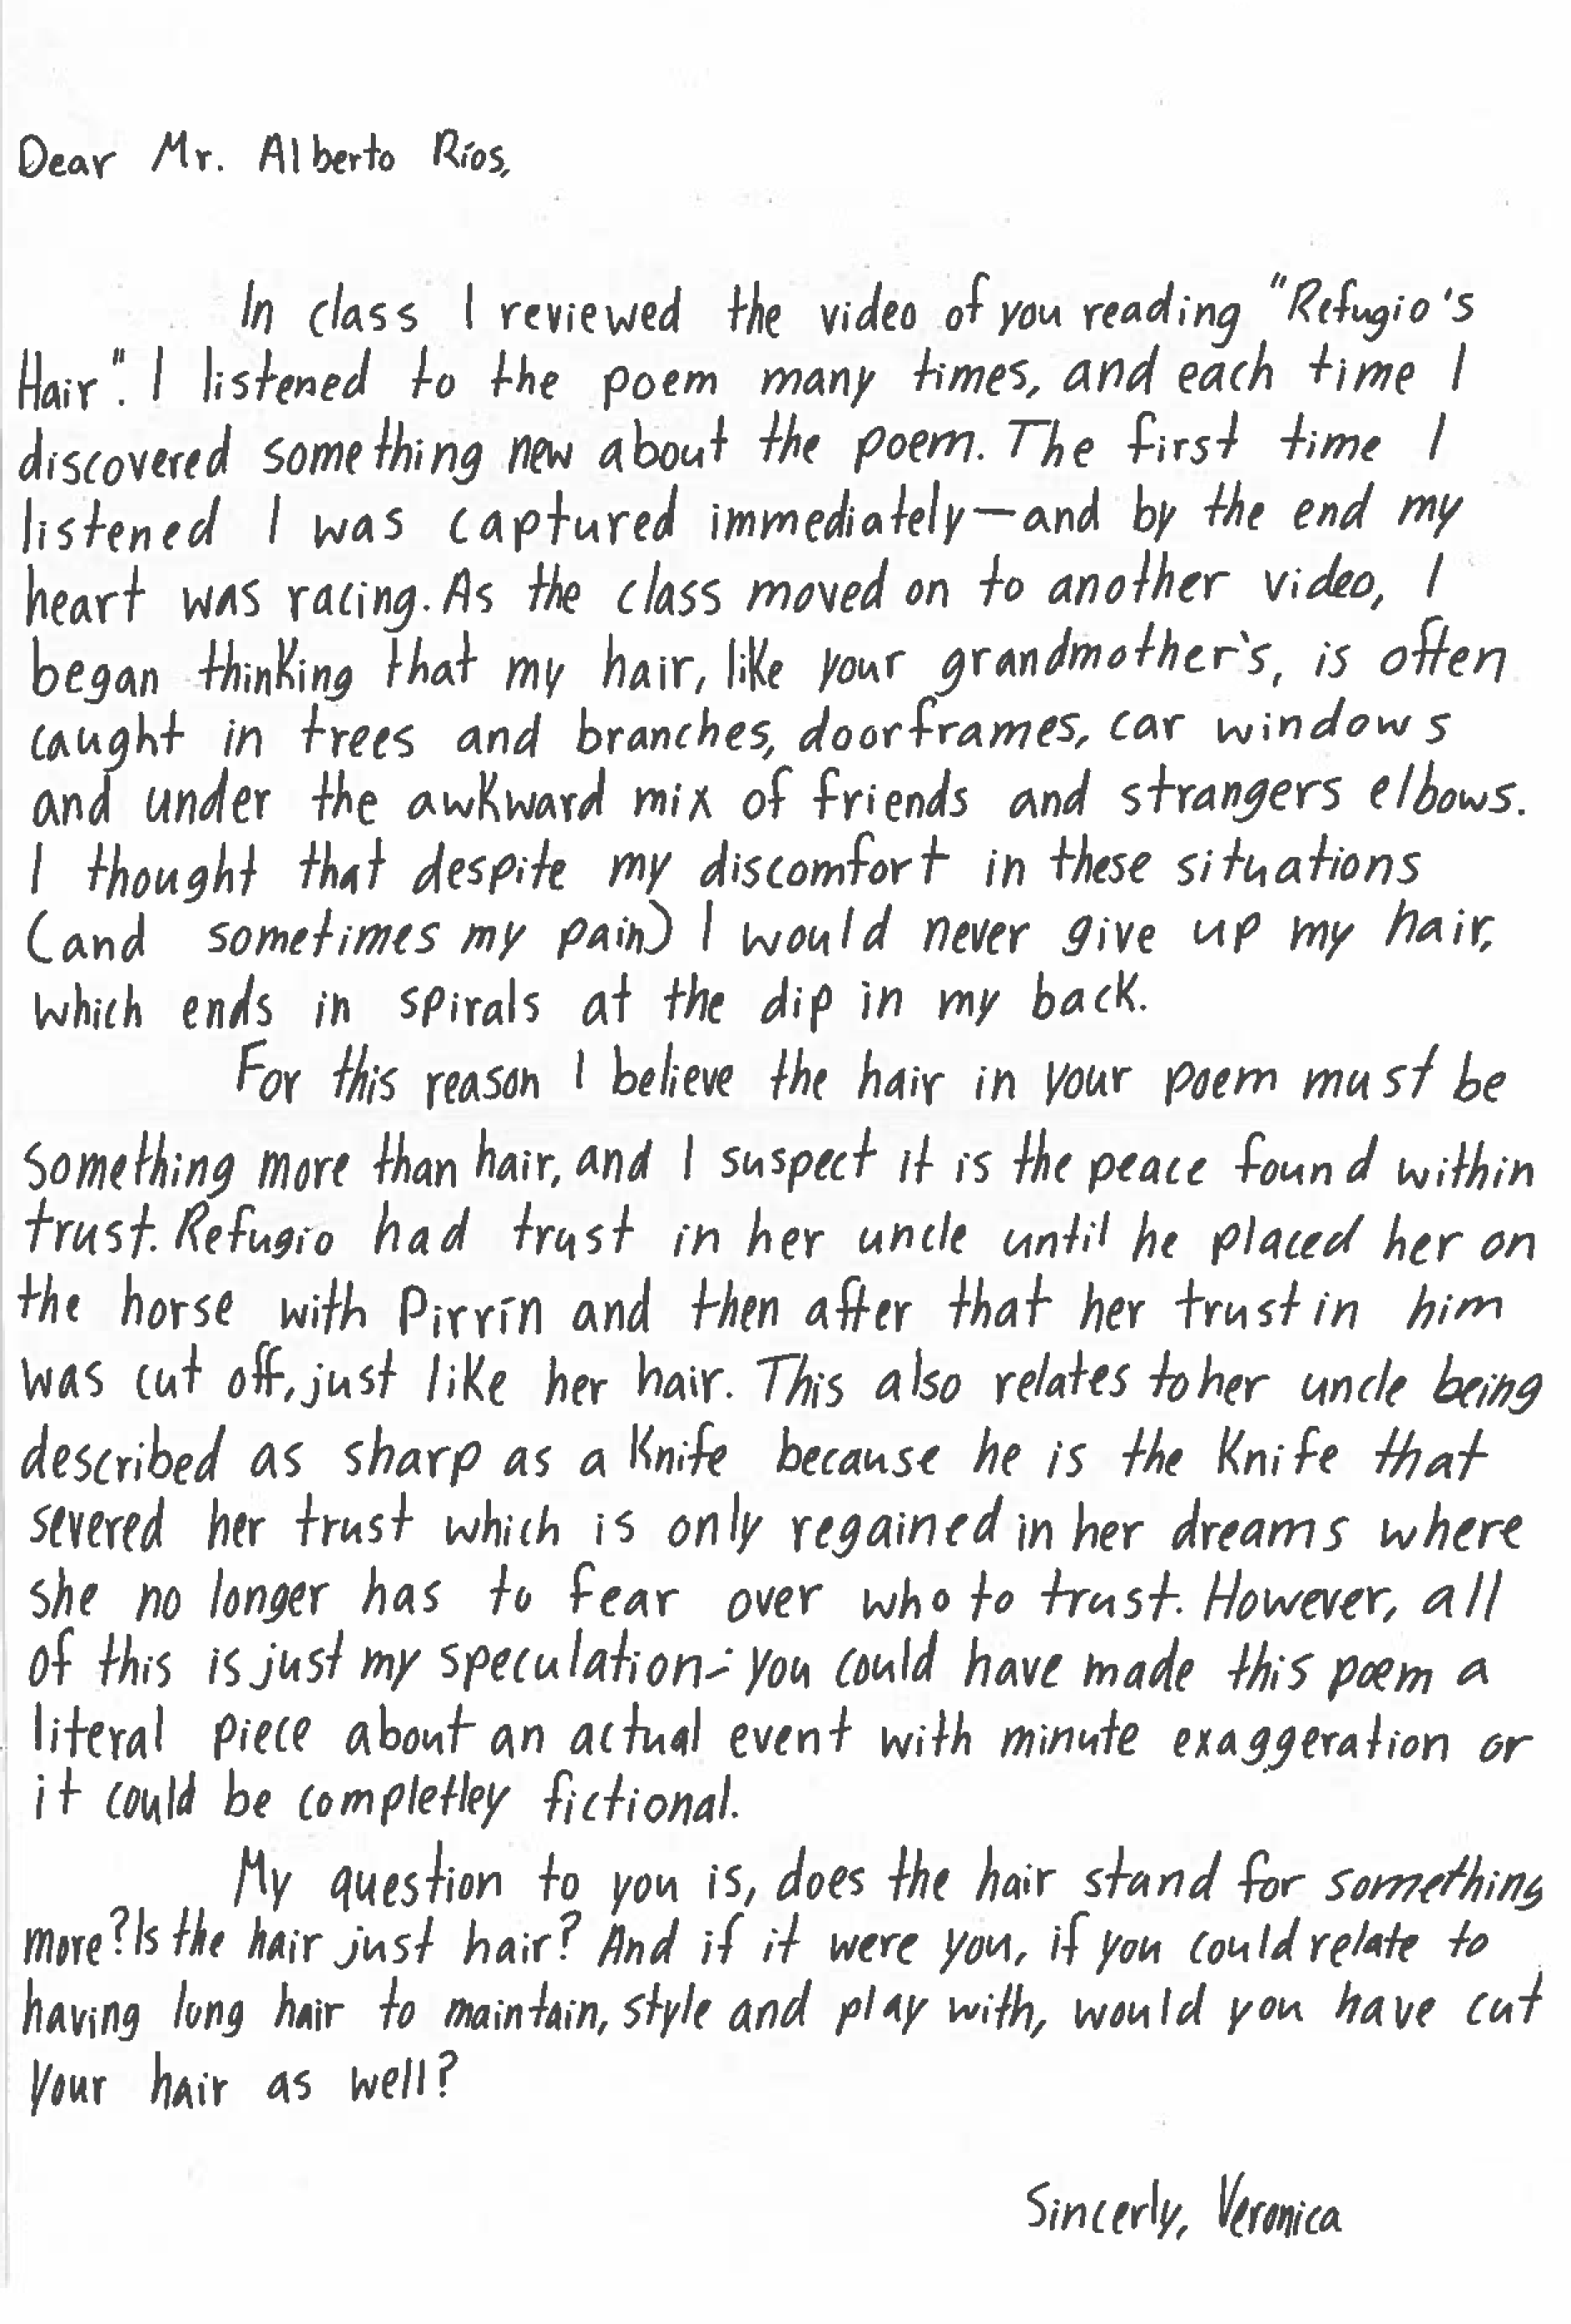 Dear Mr. Alberto Ríos,
In class I reviewed the video of you reading "Refugio's
Hair". I listened to the poem many times, and each time I
discovered something new about the poem. The first time I
listened I was captured immediately—and by the end my
heart was racing. As the class moved on to another video, I
began thinking that my hair, like your grandmother's, is often
caught in trees and branches, doorframes, car windows
and under the awkward mix of friends and strangers elbows.
I thought that despite my discomfort in these situations
(and sometimes my pain) I would never give up my hair,
which ends in spirals at the dip in my back.
For this reason I believe the hair in your poem must be
something more than hair, and I suspect it is the peace found within
trust. Refugio had trust in her uncle until he placed her on
the horse with Pirrín and then after that her trust in him
was cut off, just like her hair. This also relates to her uncle being
described as sharp as a knife because he is the knife that
severed her trust which is only regained in her dreams where
she no longer has to fear over who to trust. However, all
of this is just my speculation- you could have made this poem a
literal piece about an actual event with minute exaggeration or
it could be completley fictional.
My question to you is, does the hair stand for something
more? Is the hair just hair? And if it were you, if you could relate to
having long hair to maintain, style and play with, would you have cut
your hair as well?
Sincerly, Veronica